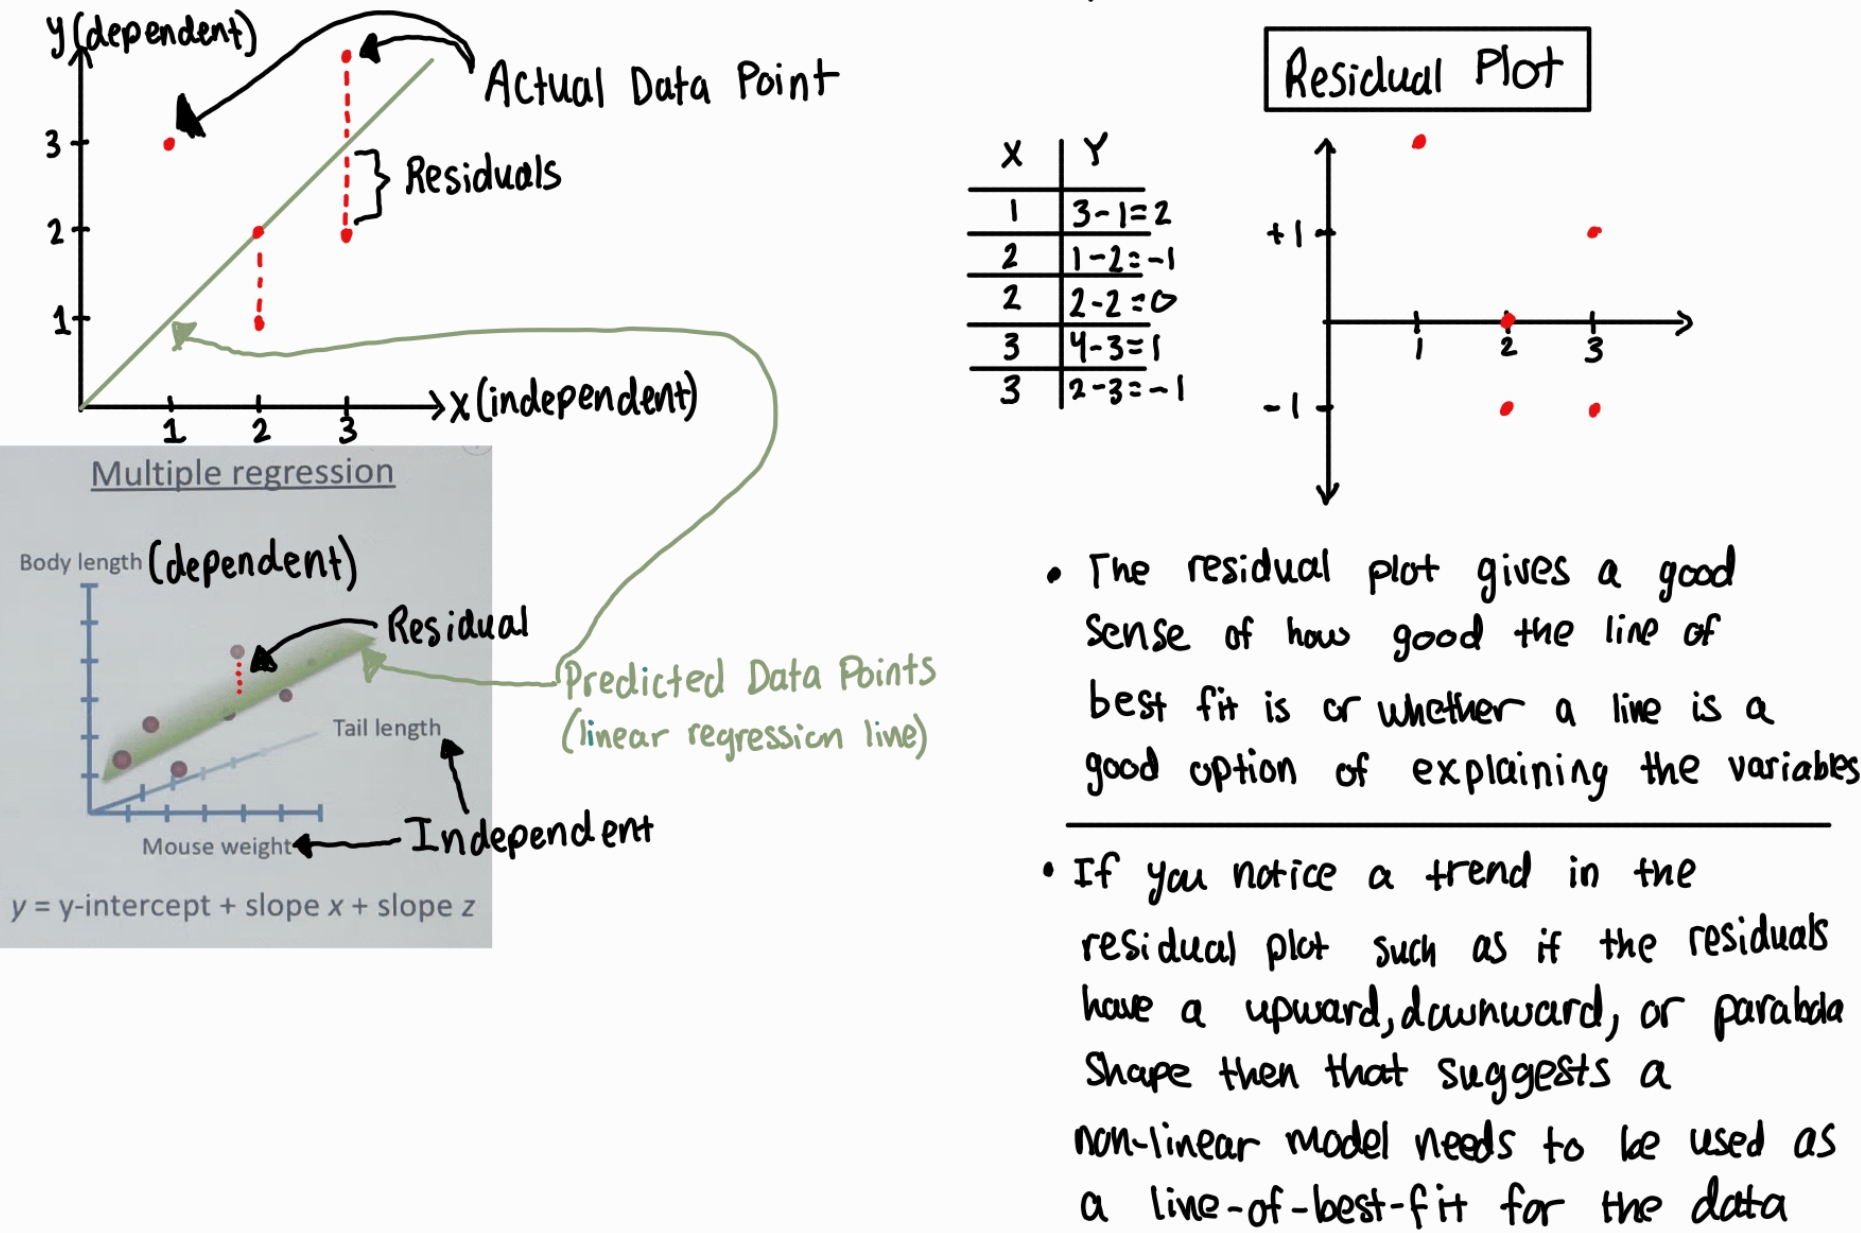 y (dependent)
Actual Data Point
3
Residuals
2
1
x (independent)
1 2 3
Multiple regression
Body length (dependent)
Residual
Predicted Data Points
(linear regression line)
Tail length
Independent
Mouse weight
y = y-intercept + slope x + slope z
Residual Plot
X Y
1 3-1=2
2 1-2=-1
2 2-2=0
3 4-3=1
3 2-3=-1
+1
1 2 3
-1
• The residual plot gives a good
sense of how good the line of
best fit is or whether a line is a
good option of explaining the variables
• If you notice a trend in the
residual plot such as if the residuals
have a upward, downward, or parabola
shape then that suggests a
non-linear model needs to be used as
a line-of-best-fit for the data